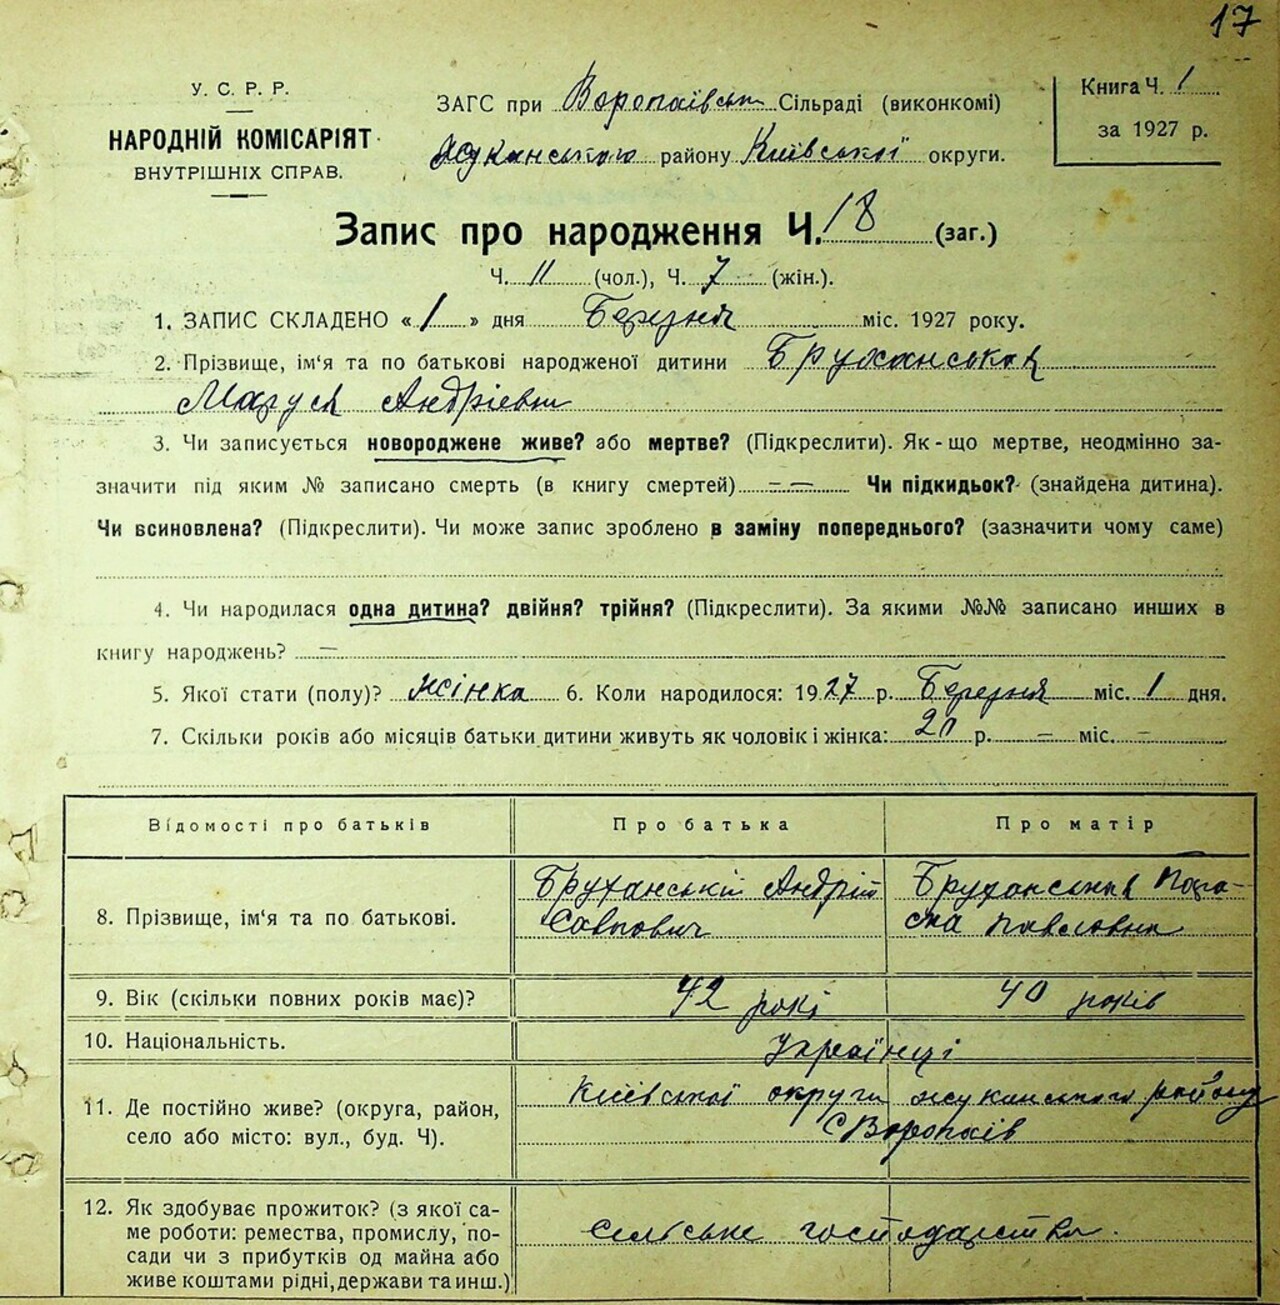 17
У. С. Р. Р.
НАРОДНІЙ КОМІСАРІЯТ
ВНУТРІШНІХ СПРАВ.
ЗАГС при Воропаївськ Сільраді (виконкомі)
Жуканського району Київської округи.
Книга Ч. 1
за 1927 р.
Запис про народження Ч. 18 (заг.)
Ч. 11 (чол.), Ч. 7 (жін.).
1. ЗАПИС СКЛАДЕНО «1» дня Березня міс. 1927 року.
2. Прізвище, ім‘я та по батькові народженої дитини Бруханськая
Маруся Андрієвн
3. Чи записується новороджене живе? або мертве? (Підкреслити). Як-що мертве, неодмінно за-
значити під яким № записано смерть (в книгу смертей) — — Чи підкидьок? (знайдена дитина).
Чи всиновлена? (Підкреслити). Чи може запис зроблено в заміну попереднього? (зазначити чому саме)
4. Чи народилася одна дитина? двійня? трійня? (Підкреслити). За якими №№ записано инших в
книгу народжень? —
5. Якої стати (полу)? жінка 6. Коли народилося: 1927 р. Березня міс. 1 дня.
7. Скільки років або місяців батьки дитини живуть як чоловік і жінка: 20 р. — міс. —
Відомості про батьків Про батька Про матір
8. Прізвище, ім‘я та по батькові. Бруханській Андрій Бруханськая Пара-
Савпович ска Павловна
9. Вік (скільки повних років має)? 42 рокі 40 років
10. Національність. Українці
11. Де постійно живе? (округа, район, Київської округи жуканського району
село або місто: вул., буд. Ч). с Воропаїв
12. Як здобуває прожиток? (з якої са-
ме роботи: ремества, промислу, по- сельське господарство.
сади чи з прибутків од майна або
живе коштами рідні, держави та инш.)